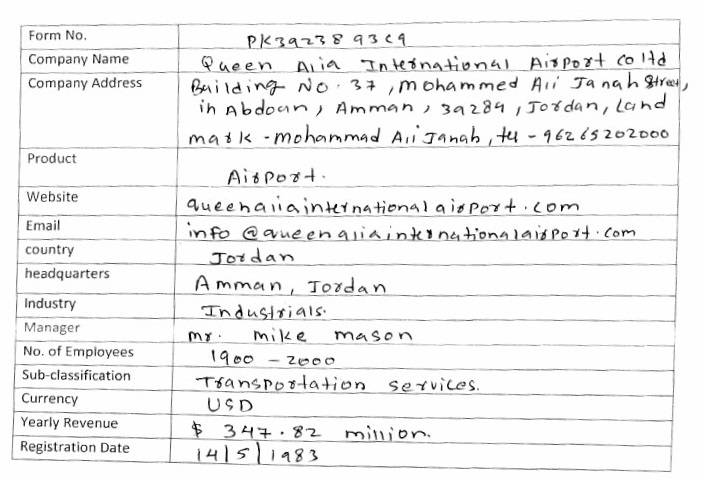 Form No. PK3923893C9
Company Name Queen Alia International Airport Co ltd
Company Address Building No. 37, Mohammed Ali Janah Street,
in Abdoun, Amman, 39284, Jordan, Land
mark - Mohammad Ali Janah, tel - 96265202000
Product Airport.
Website queenaliainternationalairport.com
Email info@queenaliainternationalairport.com
country Jordan
headquarters Amman, Jordan
Industry Industrials.
Manager Mr. Mike Mason
No. of Employees 1900 - 2000
Sub-classification Transportation Services.
Currency USD
Yearly Revenue $ 347.82 million.
Registration Date 14/5/1983